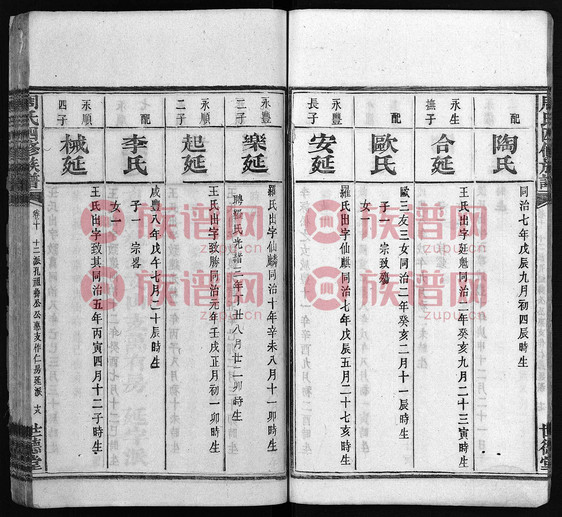 配
陶氏
同治七年戊辰九月初四辰時生
永生
撫子
合延
王氏出字廷魁同治二年癸亥九月二十三寅時生
配
歐氏
歐三友三女同治二年癸亥二月十一辰時生
子一宗致
永豐
長子
安延
羅氏出字仙麒同治七年戊辰五月二十七亥時生
永豐
三子
樂延
羅氏出字仙麟同治十年辛未八月十一卯時生
聘羅氏光緒二年丙子八月廿二卯時生
永順
二子
起延
王氏出字致勝同治元年壬戌正月初一卯時生
配
李氏
咸豐八年戊午七月二十辰時生
子一宗畧
女一
永順
四子
械延
王氏出字致其同治五年丙寅四月十二子時生
女一
周氏四修族譜
卷十
世德堂
族谱网
zupu.cn